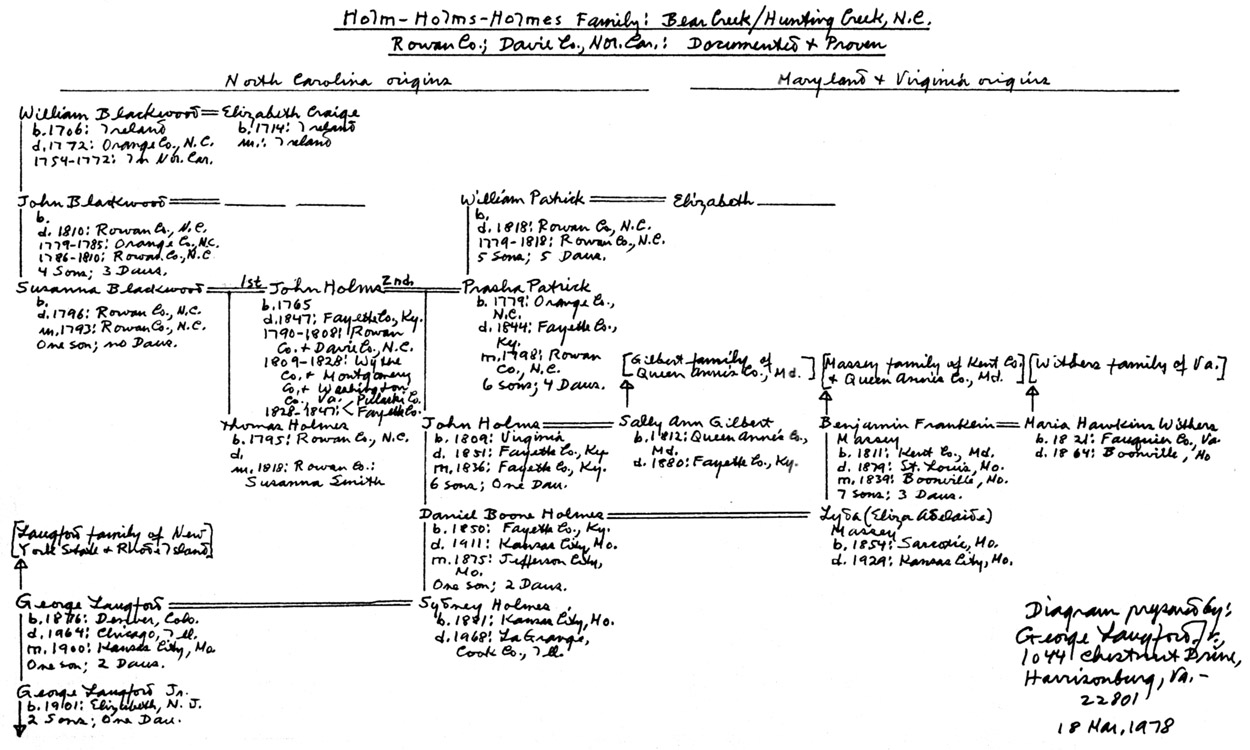 Holm-Holms-Holmes Family: Bear Creek/Hunting Creek, N.C.
Rowan Co.; Davie Co., Nor. Car.: Documented & Proven
North Carolina origins
Maryland & Virginia origins
William Blackwood = Elizabeth Craige
b. 1706: Ireland
d. 1772: Orange Co., N.C.
1754-1772: In Nor. Car.
b. 1714: Ireland
m.: Ireland
John Blackwood
b.
d. 1810: Rowan Co., N.C.
1779-1785: Orange Co., N.C.
1786-1810: Rowan Co., N.C.
4 Sons; 3 Daus.
William Patrick = Elizabeth
b.
d. 1818: Rowan Co., N.C.
1779-1818: Rowan Co., N.C.
5 Sons; 5 Daus.
Susanna Blackwood 1st John Holms 2nd. Prasha Patrick
b.
d. 1796: Rowan Co., N.C.
m. 1793: Rowan Co., N.C.
One son; no Daus.
b. 1765
d. 1847: Fayette Co., Ky.
1790-1808: Rowan
Co. & Davie Co., N.C.
1809-1828: Wythe
Co. & Montgomery
Co. & Washington
Co. Va. Pulaski Co.
1828-1847: < Fayette Co.
b. 1779: Orange Co.,
N.C.
d. 1844: Fayette Co.,
Ky.
m. 1798: Rowan
Co., N.C.
6 sons; 4 Daus.
[Gilbert family of
Queen Anne's Co., Md.]
[Massey family of Kent Co.
& Queen Anne's Co., Md.]
[Withers family of Va.]
Thomas Holmes
b. 1795: Rowan Co., N.C.
d.
m. 1818: Rowan Co.:
Susanna Smith
John Holms
b. 1809: Virginia
d. 1851: Fayette Co., Ky
m. 1836: Fayette Co., Ky.
6 sons; One Dau.
Sally Ann Gilbert
b. 1812: Queen Anne's Co.,
Md.
d. 1880: Fayette Co., Ky.
Benjamin Franklin
Massey
b. 1811: Kent Co., Md.
d. 1879: St. Louis, Mo.
m. 1839: Boonville, Mo.
7 Sons; 3 Daus.
Maria Hawkins Withers
b. 1821: Fauquier Co., Va
d. 1864: Boonville, Mo
Daniel Boone Holmes
b. 1850: Fayette Co., Ky.
d. 1911: Kansas City, Mo.
m. 1875: Jefferson City,
Mo.
One son; 2 Daus.
Lyda (Eliza Adelaide)
Massey
b. 1854: Sarcoxie, Mo.
d. 1929: Kansas City, Mo.
[Langford family of New
York State & Rhode Island]
George Langford
b. 1876: Denver, Colo.
d. 1964: Chicago, Ill.
m. 1900: Kansas City, Mo
One son; 2 Daus.
Sydney Holmes
b. 1881: Kansas City, Mo.
d. 1968: La Grange,
Cook Co., Ill.
George Langford Jr.
b. 1901: Elizabeth, N.J.
2 Sons; One Dau.
Diagram prepared by:
George Langford, Jr.,
1044 Chestnut Drive,
Harrisonburg, Va.-
22801
18 Mar, 1978